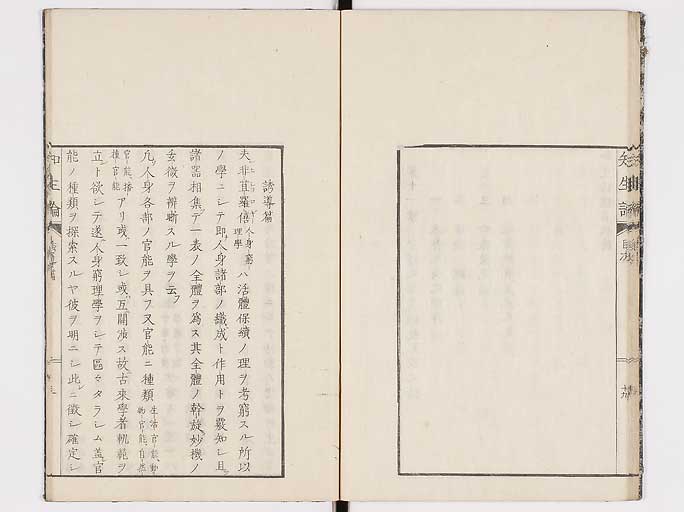 知生論
目次
誘導篇
夫非藟羅僖人身窮理學ハ活體保續ノ理ヲ考窮スル所以
ノ學ニシテ即人身諸部ノ織成ト作用トヲ覈知シ且
諸器相集テ一表ノ全體ヲ為ス其全體ノ幹旋妙機ノ
玄微ヲ辨晰スル學ヲ云フ
凡人身各部ノ官能ヲ具フ又官能ニ種類生活官能動物官能自然
官能播種官能アリ或一致シ或互ニ關渉ス故古來學者軌範ヲ
立ト欲シテ遂人身窮理學ヲシテ區々タラシム盖官
能ノ種類ヲ探索スルヤ彼ヲ明ニシ此ニ徴シ確定シ
知生論